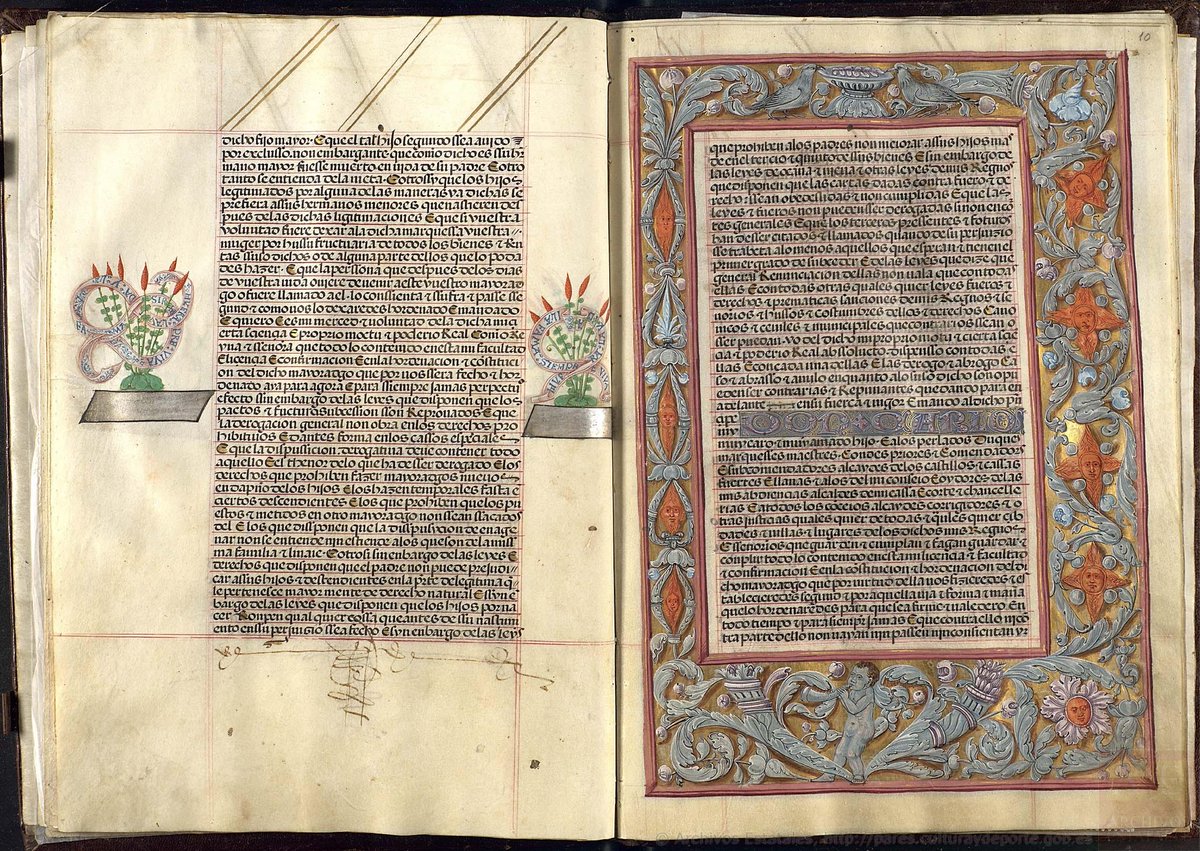 dicho fijo mayor. E que el tal hijo segundo ssea avido
por exclusso. non embargante que como dicho es ssu her
mano mayor fuesse muerto en vida de su padre E otro
tanto se entienda de la nieta. E otrossy que los hijos
legitimados por alguna de las maneras ya dichas se
prefiera a ssus hermanos menores que nascieren des
pues de las dichas ligitimaciones E que si vuestra
voluntad fuere dexar a la dicha marquessa vuestra
muger por hussufructuaria de todos los bienes & Ren
tas ssuso dichos o de alguna parte dellos que lo poda
des hazer. E que la perssona que despues de los dias
de vuestra vida oviere de venir a este vuestro mayorad
go o fuere llamado a el. lo conssienta & ssufra & passe sse
gund & como nos lo dexaredes hordenado E mandado
E quiero E es mi merced & voluntad de la dicha mi
cierta sciencia E proprio motu & poderio Real Como Rey
na & ssenora que todo lo contenido en esta mi facultad
E licencia E confirmacion E en la hordenacion & costitucion
del dicho mayoradgo que por vos ssera fecho & hor
denado aya para agora E para ssiempre jamas perpetuo
efecto sin embargo de las leyes que disponen que los
pactos & futura subcession sson Reprovados E que
la derogacion general non obra en los derechos pro
hibitivos E dantes forma en los casos especiales
E que la dispusicion derogativa deve contener todo
aquello E el thenor de lo que ha de sser derogado E los
derechos que prohiben fazer mayoradgos nuevos
en dapno de los hijos E los hazen temporales fasta
ciertos descendientes E los que prohiben que los pue
stos & metidos en otro mayoradgo non ssean sacados
del E los que disponen que la dispusicion de enage
nar non se entiende nin estiende a los que son de la mis
ma familia & linaje E otrosi sin embargo de las leyes E
derechos que disponen que el padre non puede prejudi
car a ssus hijos & descendientes en la parte de legitima que
le pertenesce mayormente de derecho natural E syn em
bargo de las leyes que disponen que los hijos por na
cer Ronpen qual quier cossa que antes de ssu nascimi
ento en ssu perjuyzio ssea fecho E syn embargo de las leyes
10
que prohiben a los padres non mejorar a ssus hijos mas
de en el tercio & quinto de ssus bienes E sin embargo de
las leyes de ocaña & njeva & otras leyes de mis Regnos
que disponen que las cartas dadas contra fuero & de
recho ssean obedesidas & non cunplidas E que las
leyes & fueros non pueden sser derogadas si non en cor
tes generales E que los terceros pressentes & futuros
han de sser citados & llamados quando de su perjuyzio
sse trabta E a lo menos aquellos que esperan & tienen el
primer grado de subceder E de las leyes que dize que
general Renunciacion dellas non vala que con todas
ellas E con todas otras quales quier leyes fueros &
derechos & prematicas sanciones de mis Regnos & se
norios & hussos & costumbres dellos & derechos Cano
nicos & ceviles & municipales que contra nos ssean o
sser puedan yo del dicho mi proprio motu & cierta sciencia
& poderio Real absoluto. dispensso con todas e
llas E con cada una dellas E las derogo & abrogo & ca
sso & abasso & anulo en quanto a lo suso dicho son o pu
eden sser contrarias & Repunantes quedando para en
adelante en su fuerca & vigor E mando al dicho pri
ncipe DON CARLOS
mi muy caro & muy amado hijo. E a los perlados Duques
marquesses maestres. Condes priores & Comendadores
E subcomendadores alcaydes de los castillos & cassas
fuertes E llanas & a los del mi consejo E oydores de las
mis abdiencias alcaldes de mi cassa E corte & chancelle
rias E a todos los concejos alcaydes corrigidores & o
tras justicias quales quier de todas & quales quier cib
dades & villas & lugares de los dichos mis Regnos
E ssenorios que guarden & cunplan & fagan guardar &
conplir todo lo contenido en esta mi licencia & facultad
& confirmacion E en la costitucion & hordenacion del di
cho mayoradgo que por virtud della vos fizieredes & es
tableciereredes segund & por aquella via & forma & manera
que lo hordenaredes para que sea firme & valedero. En
todo tienpo & para ssienpre jamas E que contra ello nin
contra parte dello non vayan nin passen nin consientan yr
© Archivos Estatales, http://pares.culturaydeporte.gob.es